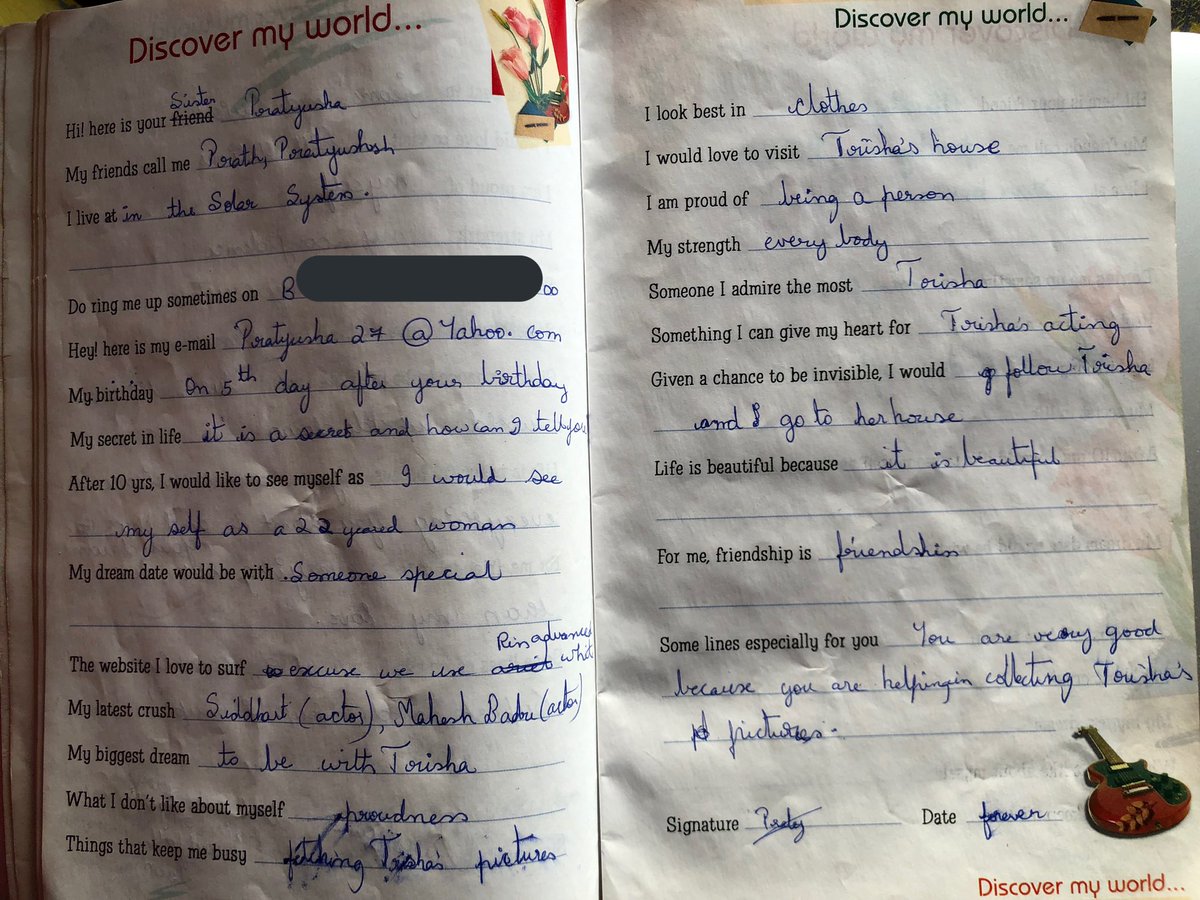 Discover my world...
Sister
Hi! here is your friend Pratyusha
My friends call me Prath, Pratyushsh
I live at in the Solar System.
Do ring me up sometimes on B oo
Hey! here is my e-mail Pratyusha 27 @ Yahoo. com
My birthday On 5th day after your birthday
My secret in life it is a secret and how can I tell you
After 10 yrs, I would like to see myself as I would see
my self as a 22 yeared woman
My dream date would be with Someone special
Rin advanced
The website I love to surf excuse we use whit
My latest crush Siddhart (actor), Mahesh Babu (actor)
My biggest dream to be with Trisha
What I don't like about myself proudness
Things that keep me busy fetching Trisha's pictures
Discover my world...
I look best in clothes
I would love to visit Trisha's house
I am proud of being a person
My strength every body
Someone I admire the most Trisha
Something I can give my heart for Trisha's acting
Given a chance to be invisible, I would follow Trisha
and I go to her house
Life is beautiful because it is beautiful
For me, friendship is friendship
Some lines especially for you You are very good
because you are helping in collecting Trisha's
pictures.
Signature Date forever
Discover my world...